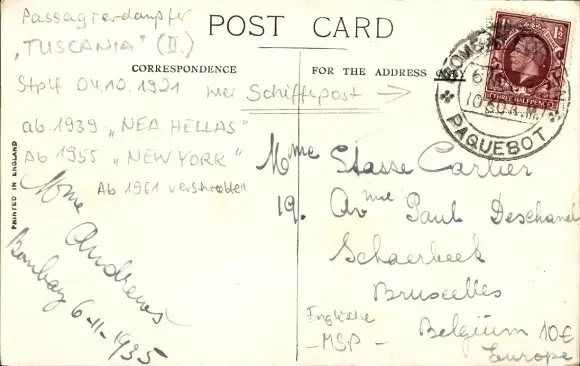 Passagierdampfer
„TUSCANIA" (II.)
Stplf 04.10.1921
hier Schiffspost →
ab 1939 „NEA HELLAS"
Ab 1955 „NEW YORK"
Ab 1961 verschrottet
POST CARD
CORRESPONDENCE
FOR THE ADDRESS ONLY
PRINTED IN ENGLAND
Mme Andrews
Bombay 6-11-1935
1½
THREE HALFPENCE
BOMBAY
10 30 A.M.
PAQUEBOT
Mme Stasse Carlier
19. Avnue Paul Deschanel
Schaerbeek
Bruxelles
Belgium
Europe
Englische
- MSP -
10€